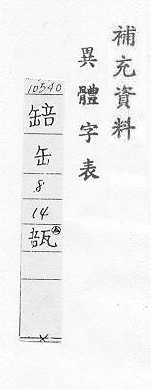 補充資料
異體字表
10540
䍌
缶
8
14
瓿